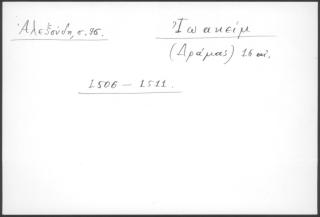 Ἀλεξούδη, σ. 95.
Ἰωακείμ
(Δράμας) 16 αἰ.
1506 — 1511.